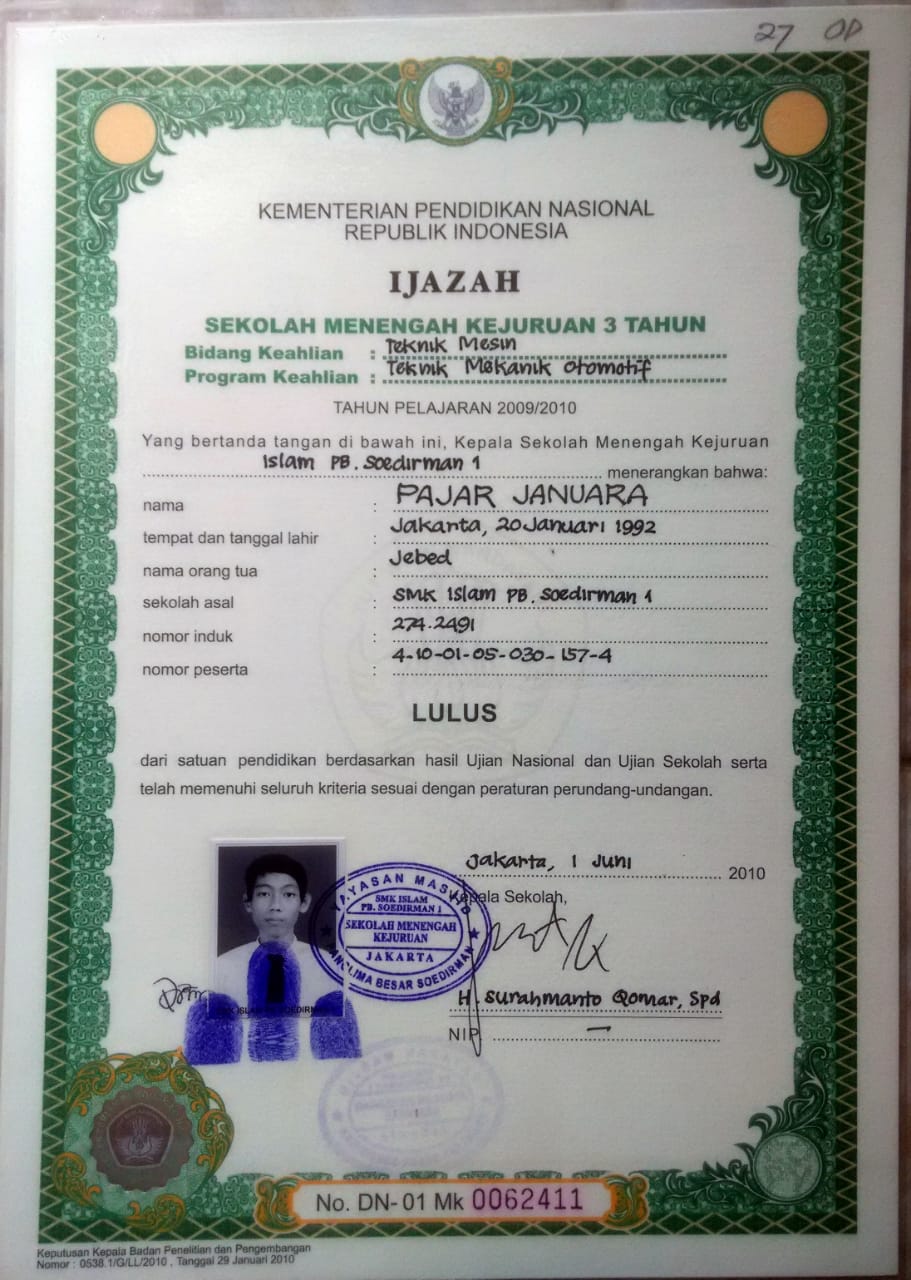 27 OD
KEMENTERIAN PENDIDIKAN NASIONAL
REPUBLIK INDONESIA
IJAZAH
SEKOLAH MENENGAH KEJURUAN 3 TAHUN
Bidang Keahlian : Teknik Mesin
Program Keahlian : Teknik Mekanik Otomotif
TAHUN PELAJARAN 2009/2010
Yang bertanda tangan di bawah ini, Kepala Sekolah Menengah Kejuruan
Islam PB. Soedirman 1 menerangkan bahwa:
nama : PAJAR JANUARA
tempat dan tanggal lahir : Jakarta, 20 Januari 1992
nama orang tua : Jebed
sekolah asal : SMK Islam PB. Soedirman 1
nomor induk : 274.2491
nomor peserta : 4-10-01-05-030-157-4
LULUS
dari satuan pendidikan berdasarkan hasil Ujian Nasional dan Ujian Sekolah serta
telah memenuhi seluruh kriteria sesuai dengan peraturan perundang-undangan.
Jakarta, 1 Juni 2010
Kepala Sekolah,
YAYASAN MASJID
SMK ISLAM
PB. SOEDIRMAN 1
SEKOLAH MENENGAH
KEJURUAN
JAKARTA
PANGLIMA BESAR SOEDIRMAN
H. Surahmanto Qomar, Spd
NIP –
No. DN-01 Mk 0062411
Keputusan Kepala Badan Penelitian dan Pengembangan
Nomor : 0538.1/G/LL/2010 , Tanggal 29 Januari 2010